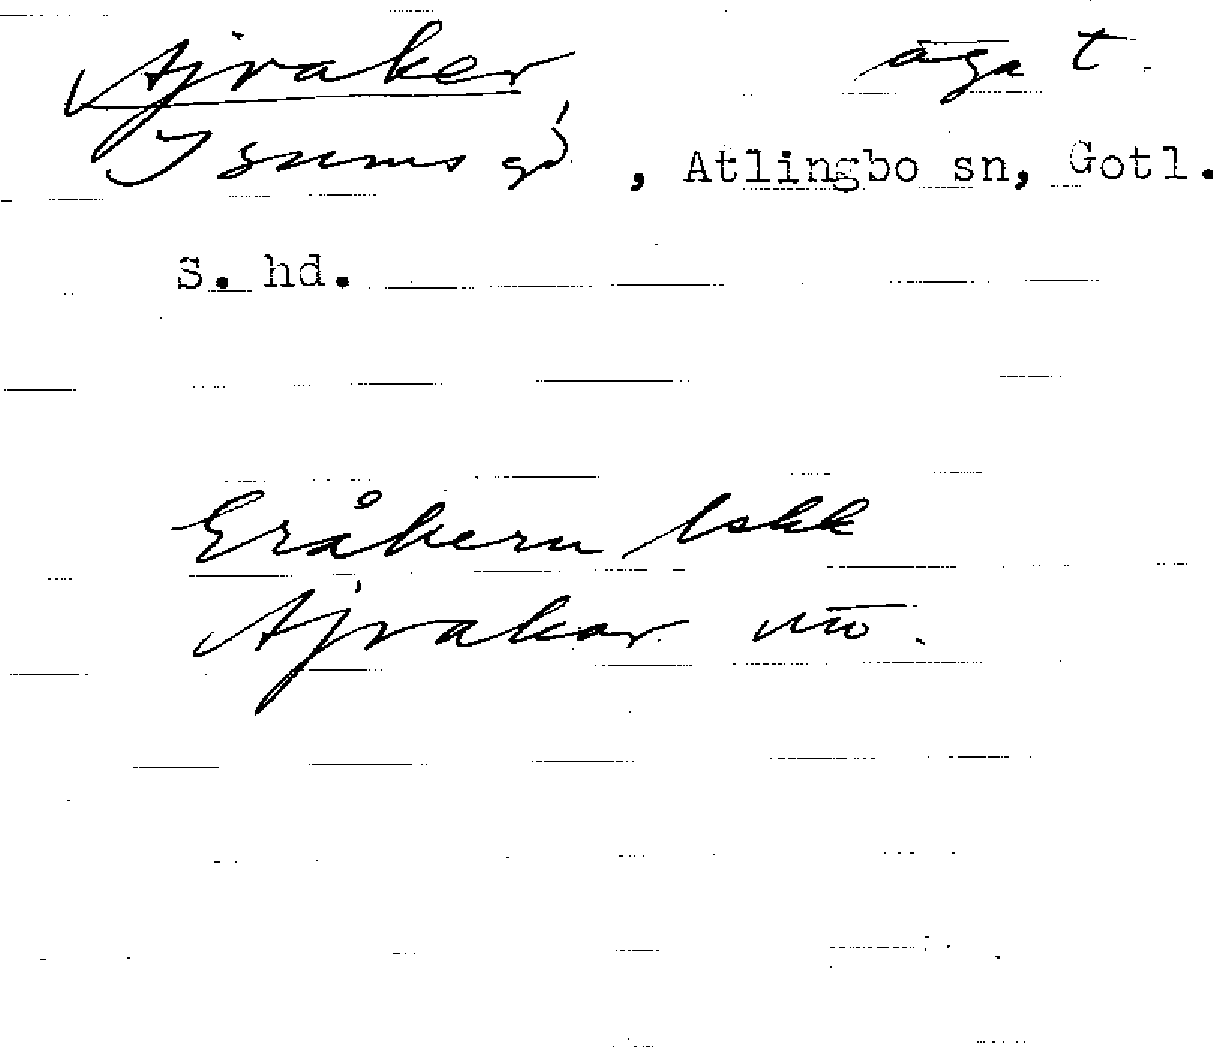 Ajraker äga t.
Isums gd, Atlingbo sn, Gotl.
S. hd.
Eråkern lskk
Ajrakar mö.